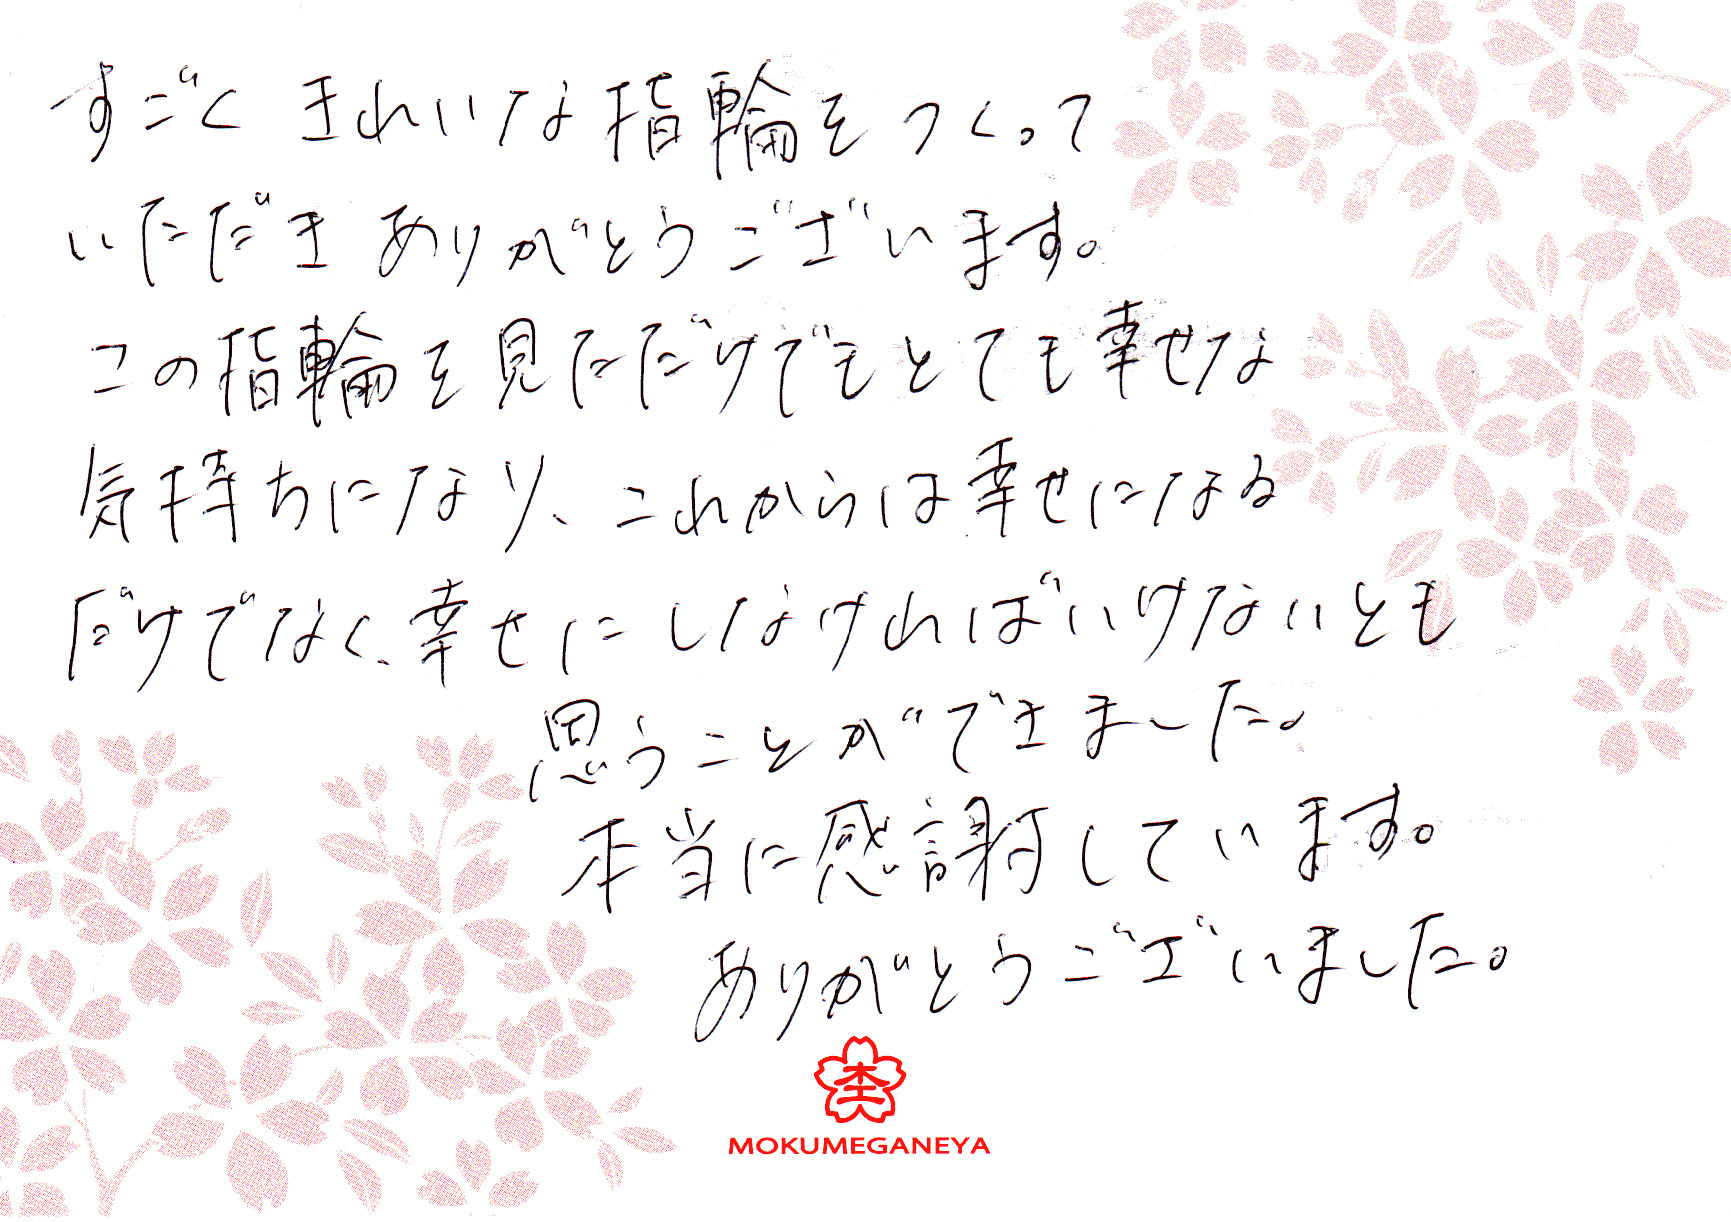 すごく きれいな指輪をつくって
いただき ありがとうございます。
この指輪を見ただけでもとても幸せな
気持ちになり、これからは幸せになる
だけでなく、幸せにしなければいけないとも
思うことができました。
本当に感謝しています。
ありがとうございました。
杢
MOKUMEGANEYA